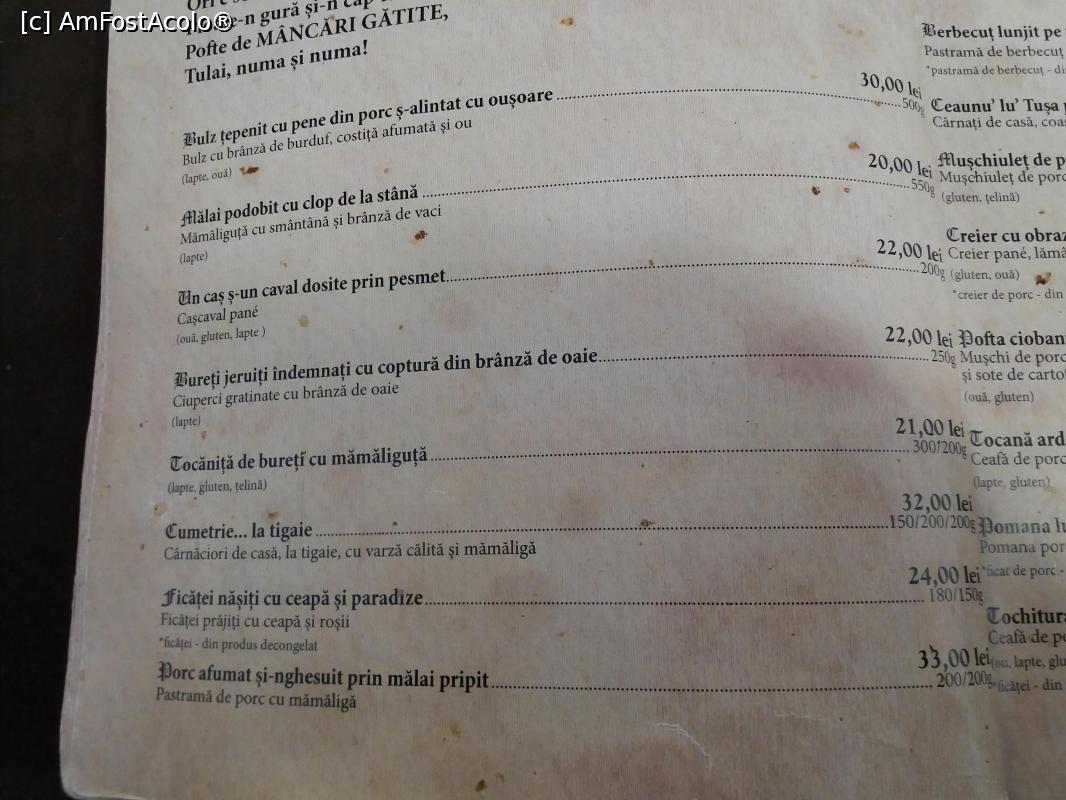 [c] AmFostAcolo®
gură și-n cap
Pofte de MÂNCĂRI GĂTITE,
Tulai, numa și numa!
Bulz țepenit cu pene din porc ș-alintat cu oușoare 30,00 lei
500g
Bulz cu brânză de burduf, costiță afumată și ou
(lapte, ouă)
Mălai podobit cu clop de la stână 20,00 lei
550g
Mămăliguță cu smântână și brânză de vaci
(lapte)
Un caș ș-un caval dosite prin pesmet 22,00 lei
200g
Cașcaval pané
(ouă, gluten, lapte )
Bureți jeruiți îndemnați cu coptură din brânză de oaie 22,00 lei
250g
Ciuperci gratinate cu brânză de oaie
(lapte)
Tocăniță de bureți cu mămăliguță 21,00 lei
300/200g
(lapte, gluten, țelină)
Cumetrie... la tigaie 32,00 lei
150/200/200g
Cârnăciori de casă, la tigaie, cu varză călită și mămăligă
Ficăței nășiți cu ceapă și paradize 24,00 lei
180/150g
Ficăței prăjiți cu ceapă și roșii
*ficăței - din produs decongelat
Porc afumat și-nghesuit prin mălai pripit 33,00 lei
200/200g
Pastramă de porc cu mămăligă
Berbecuț lunjit pe
Pastramă de berbecuț
*pastramă de berbecuț - di
Ceaunu' lu' Tușa
Cârnați de casă, coa
Mușchiuleț de p
Mușchiuleț de porc
(gluten, țelină)
Creier cu obraz
Creier pané, lămâ
(gluten, ouă)
*creier de porc - din
Pofta cioban
Mușchi de porc
și sote de carto
(ouă, gluten)
Tocană ard
Ceafă de porc
(lapte, gluten)
Pomana lu
Pomana por
*ficat de porc -
Tochitura
Ceafă de po
(ou, lapte, glu
*ficăței - din